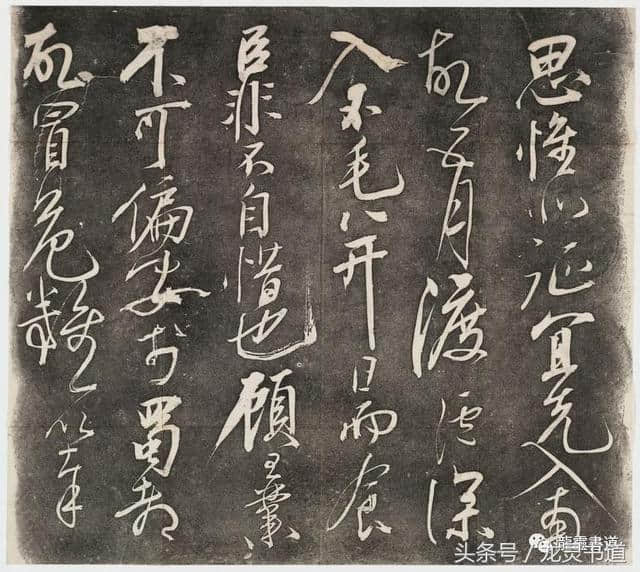 思惟北征宜先入南
故五月渡瀘深
入不毛并日而食
臣非不自惜也顧王業
不可偏安於蜀都
故冒危難以奉
龍靈書道
头条号 / 龙灵书道